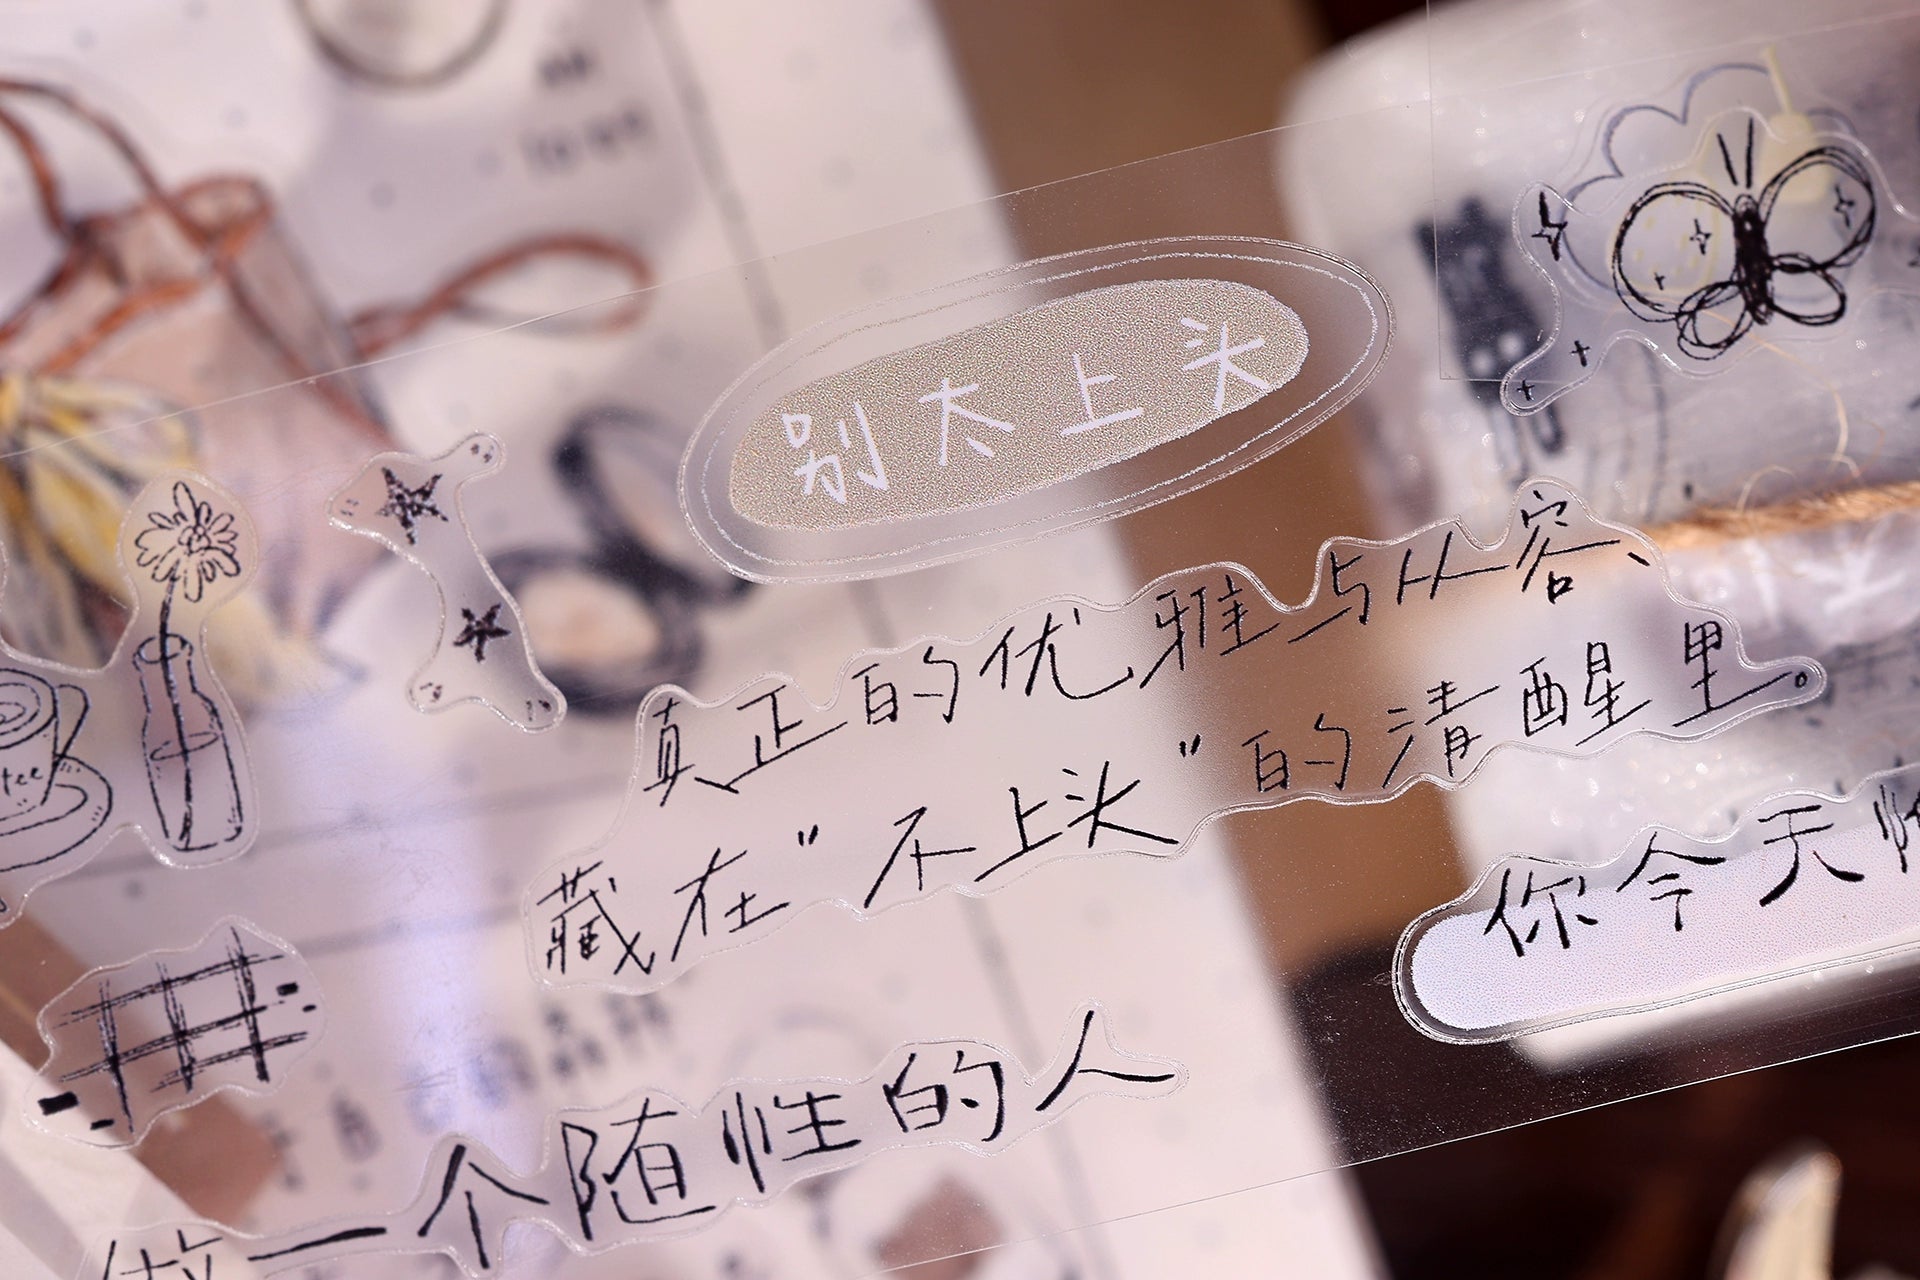 别太上头
真正的优雅与从容、
藏在"不上头"的清醒里。
你今天
做一个随性的人